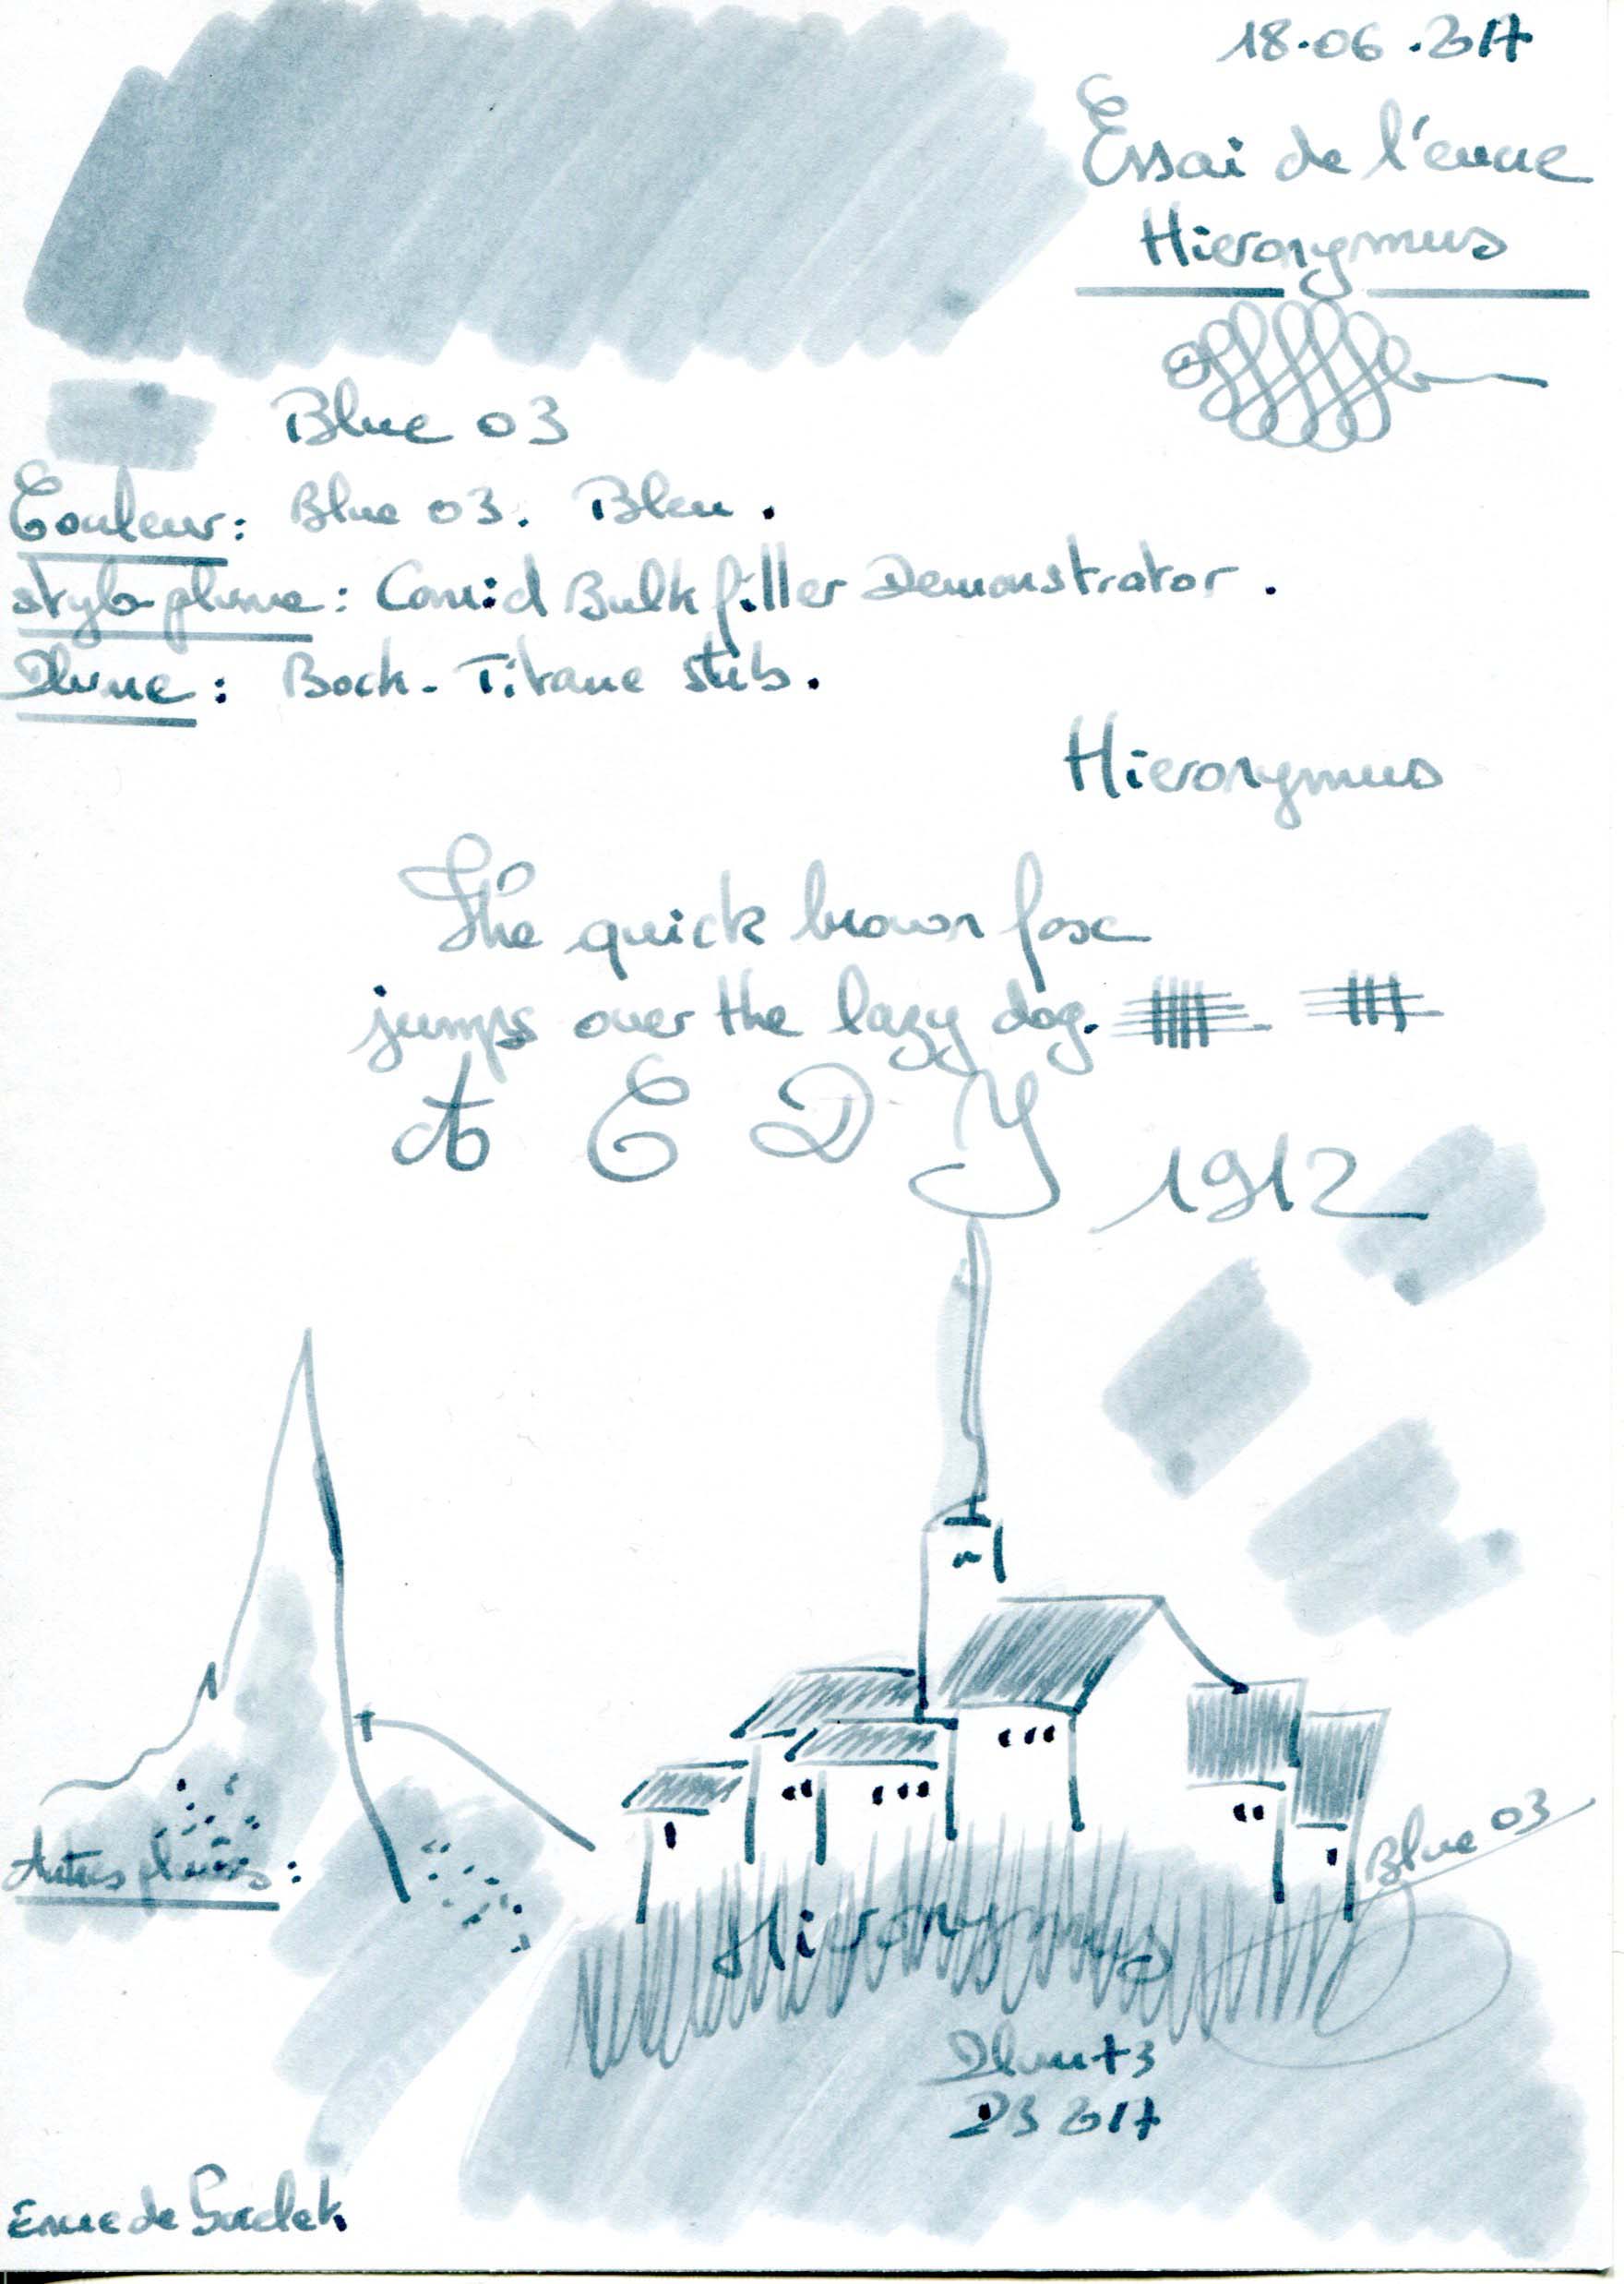 18.06.2017
Essai de l'encre
Hieronymus
Blue 03
Couleur: Blue 03. Bleu.
stylo plume: Conid Bulkfiller Demonstrator.
Plume: Bock. Titane stub.
Hieronymus
The quick brown fox
jumps over the lazy dog.
A E D Y
1912
Blue 03
Autres plumes:
Hieronymus
2017
Encre de